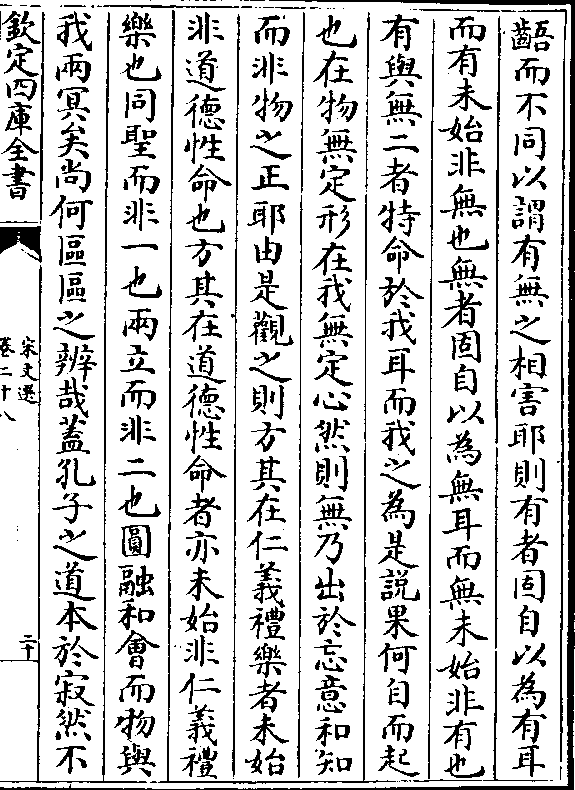 齬而不同以謂有無之相害耶則有者固自以為有耳
而有未始非無也無者固自以為無耳而無未始非有也
有與無二者特命於我耳而我之為是説果何自而起
也在物無定形在我無定心然則無乃出於忘意和知
而非物之正耶由是觀之則方其在仁義禮樂者未始
非道德性命也方其在道德性命者亦未始非仁義禮
樂也同聖而非一也兩立而非二也圓融和會而物與
我兩冥矣尚何區區之辨哉蓋孔子之道本於寂然不
欽定四庫全書
宋文選
卷二十八
二十